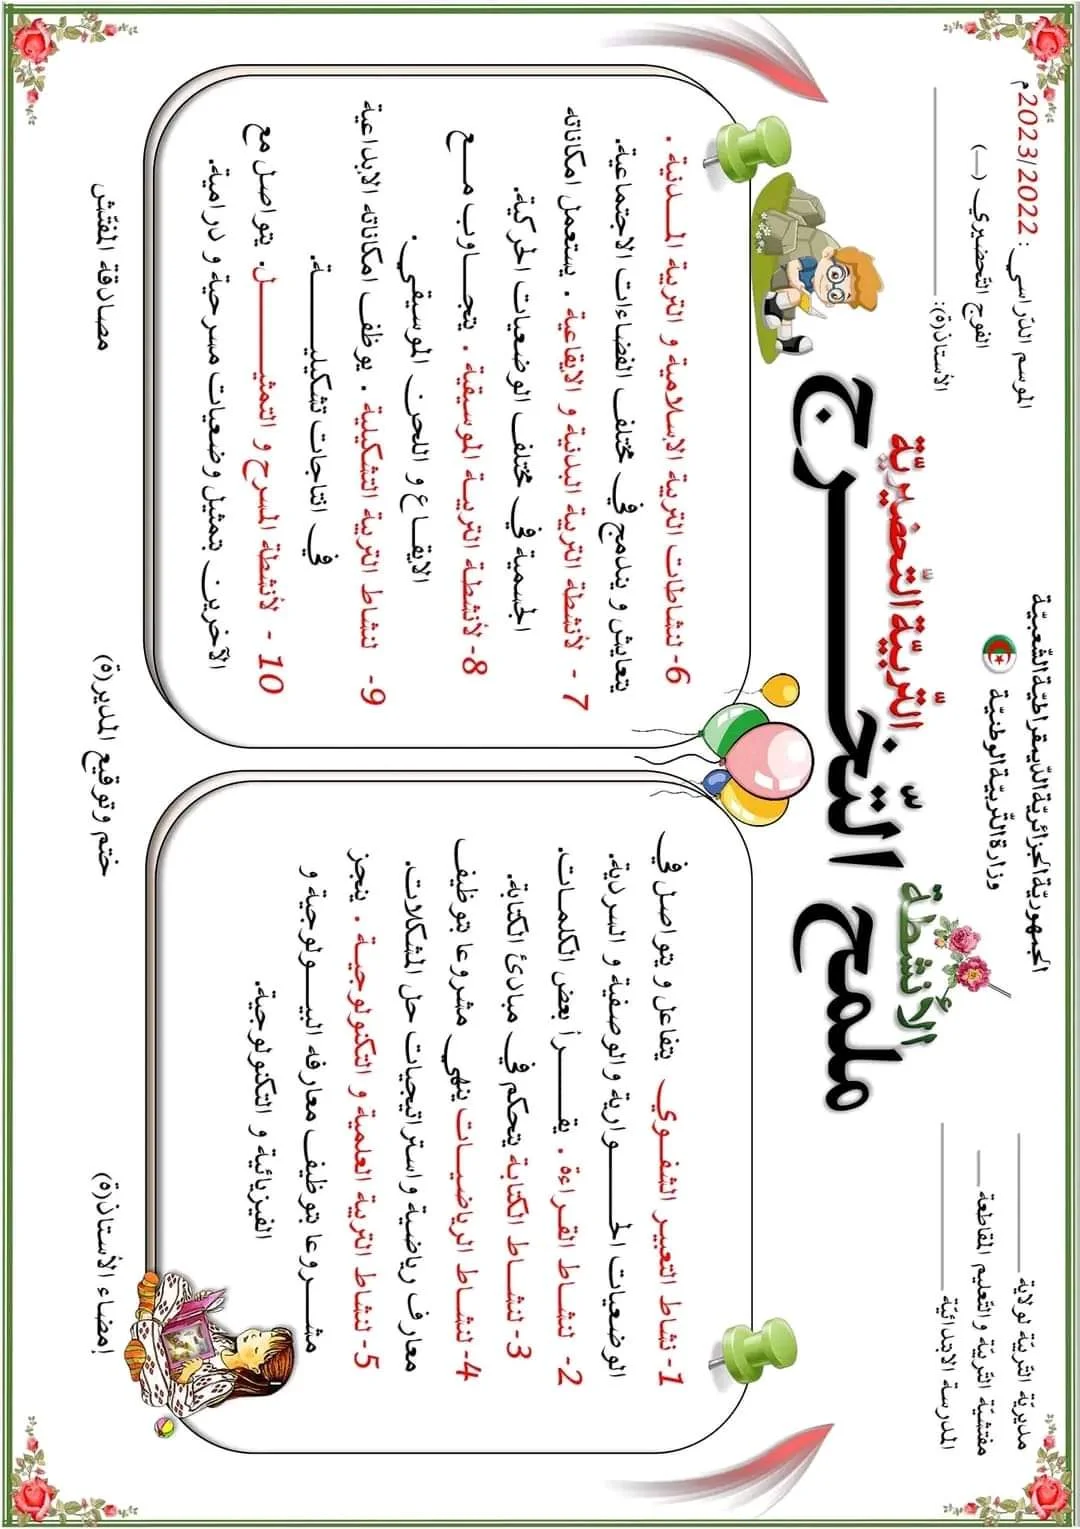 الجمهوريّة الجزائريّة الدّيمقراطيّة الشّعبيّة
وزارة التّربيّة الوطنيّة
مديريّة التّربيّة لولاية
مفتشيّة التّربيّة والتّعليم المقاطعة
المدرسة الابتدائيّة
الموسم الدّراسي : 2023/2022م
الفوج التّحضيري (—)
الأستاذ(ة):
الأنشطة
التّربيّة التّحضيريّة
ملمح التّخرج
1- نشاط التعبير الشفوي يتفاعل و يتواصل في
الوضعيات الحوارية والوصفية و السردية.
2- لنشاط القراءة . يقرأ بعض الكلمات.
3- لنشاط الكتابة يتحكم في مبادئ الكتابة.
4- لنشاط الرياضيات ينهي مشروعا بتوظيف
معارف رياضية واستراتيجيات حل المشكلات.
5- لنشاط التربية العلمية و التكنولوجية . ينجز
مشروعا بتوظيف معارفه البيولوجية و
الفيزيائية و التكنولوجية.
6- لنشاطات التربية الاسلامية و التربية المدنية .
يتعايش و يندمج في مختلف الفضاءات الاجتماعية.
7 - لأنشطة التربية البدنية و الايقاعية . يستعمل امكاناته
الجسمية في مختلف الوضعيات الحركية.
8- لأنشطة التربية الموسيقية . يتجاوب مع
الايقاع و اللحن الموسيقي.
9- لنشاط التربية التشكيلية . يوظف امكاناته الابداعية
في انتاجات تشكيلية.
10 - لأنشطة المسرح و التمثيل. يتواصل مع
الآخرين بتمثيل وضعيات مسرحية و درامية.
إمضاء الأستاذ(ة)
ختم وتوقيع المدير(ة)
مصادقة المفتش